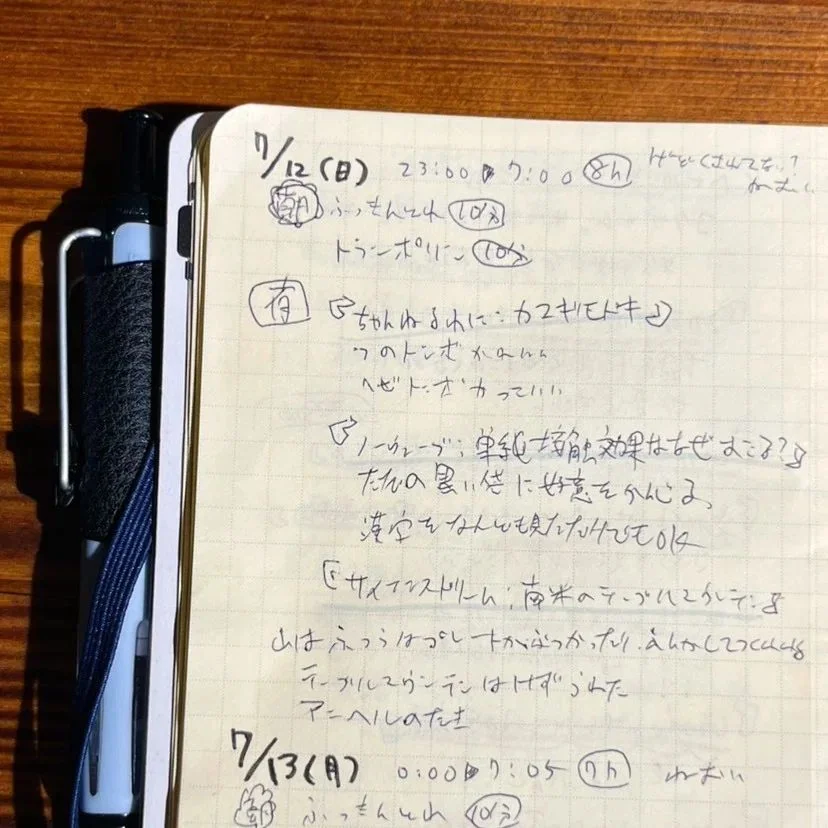 7/12(日) 23:00 ▶ 7:00 8h ねむい
朝 ふっきんとれ 10分
トランポリン 10分
夜 『ちゃんねるわに:カマキリモドキ』
ツノトンボかわいい
ヘビトンボかっこいい
単純接触効果はなぜおこる?』
ただの黒い袋に好意をかんじる、
漢字をなんども見ただけでもOK
『サイエンスドリーム:南米のテーブルマウンテン』
山はふつうはプレートがぶつかったり、ふんかしてつくられる
テーブルマウンテンはけずられた
アンヘルのたき
7/13(月) 0:00 ▶ 7:05 7h ねむい
朝 ふっきんとれ 10分